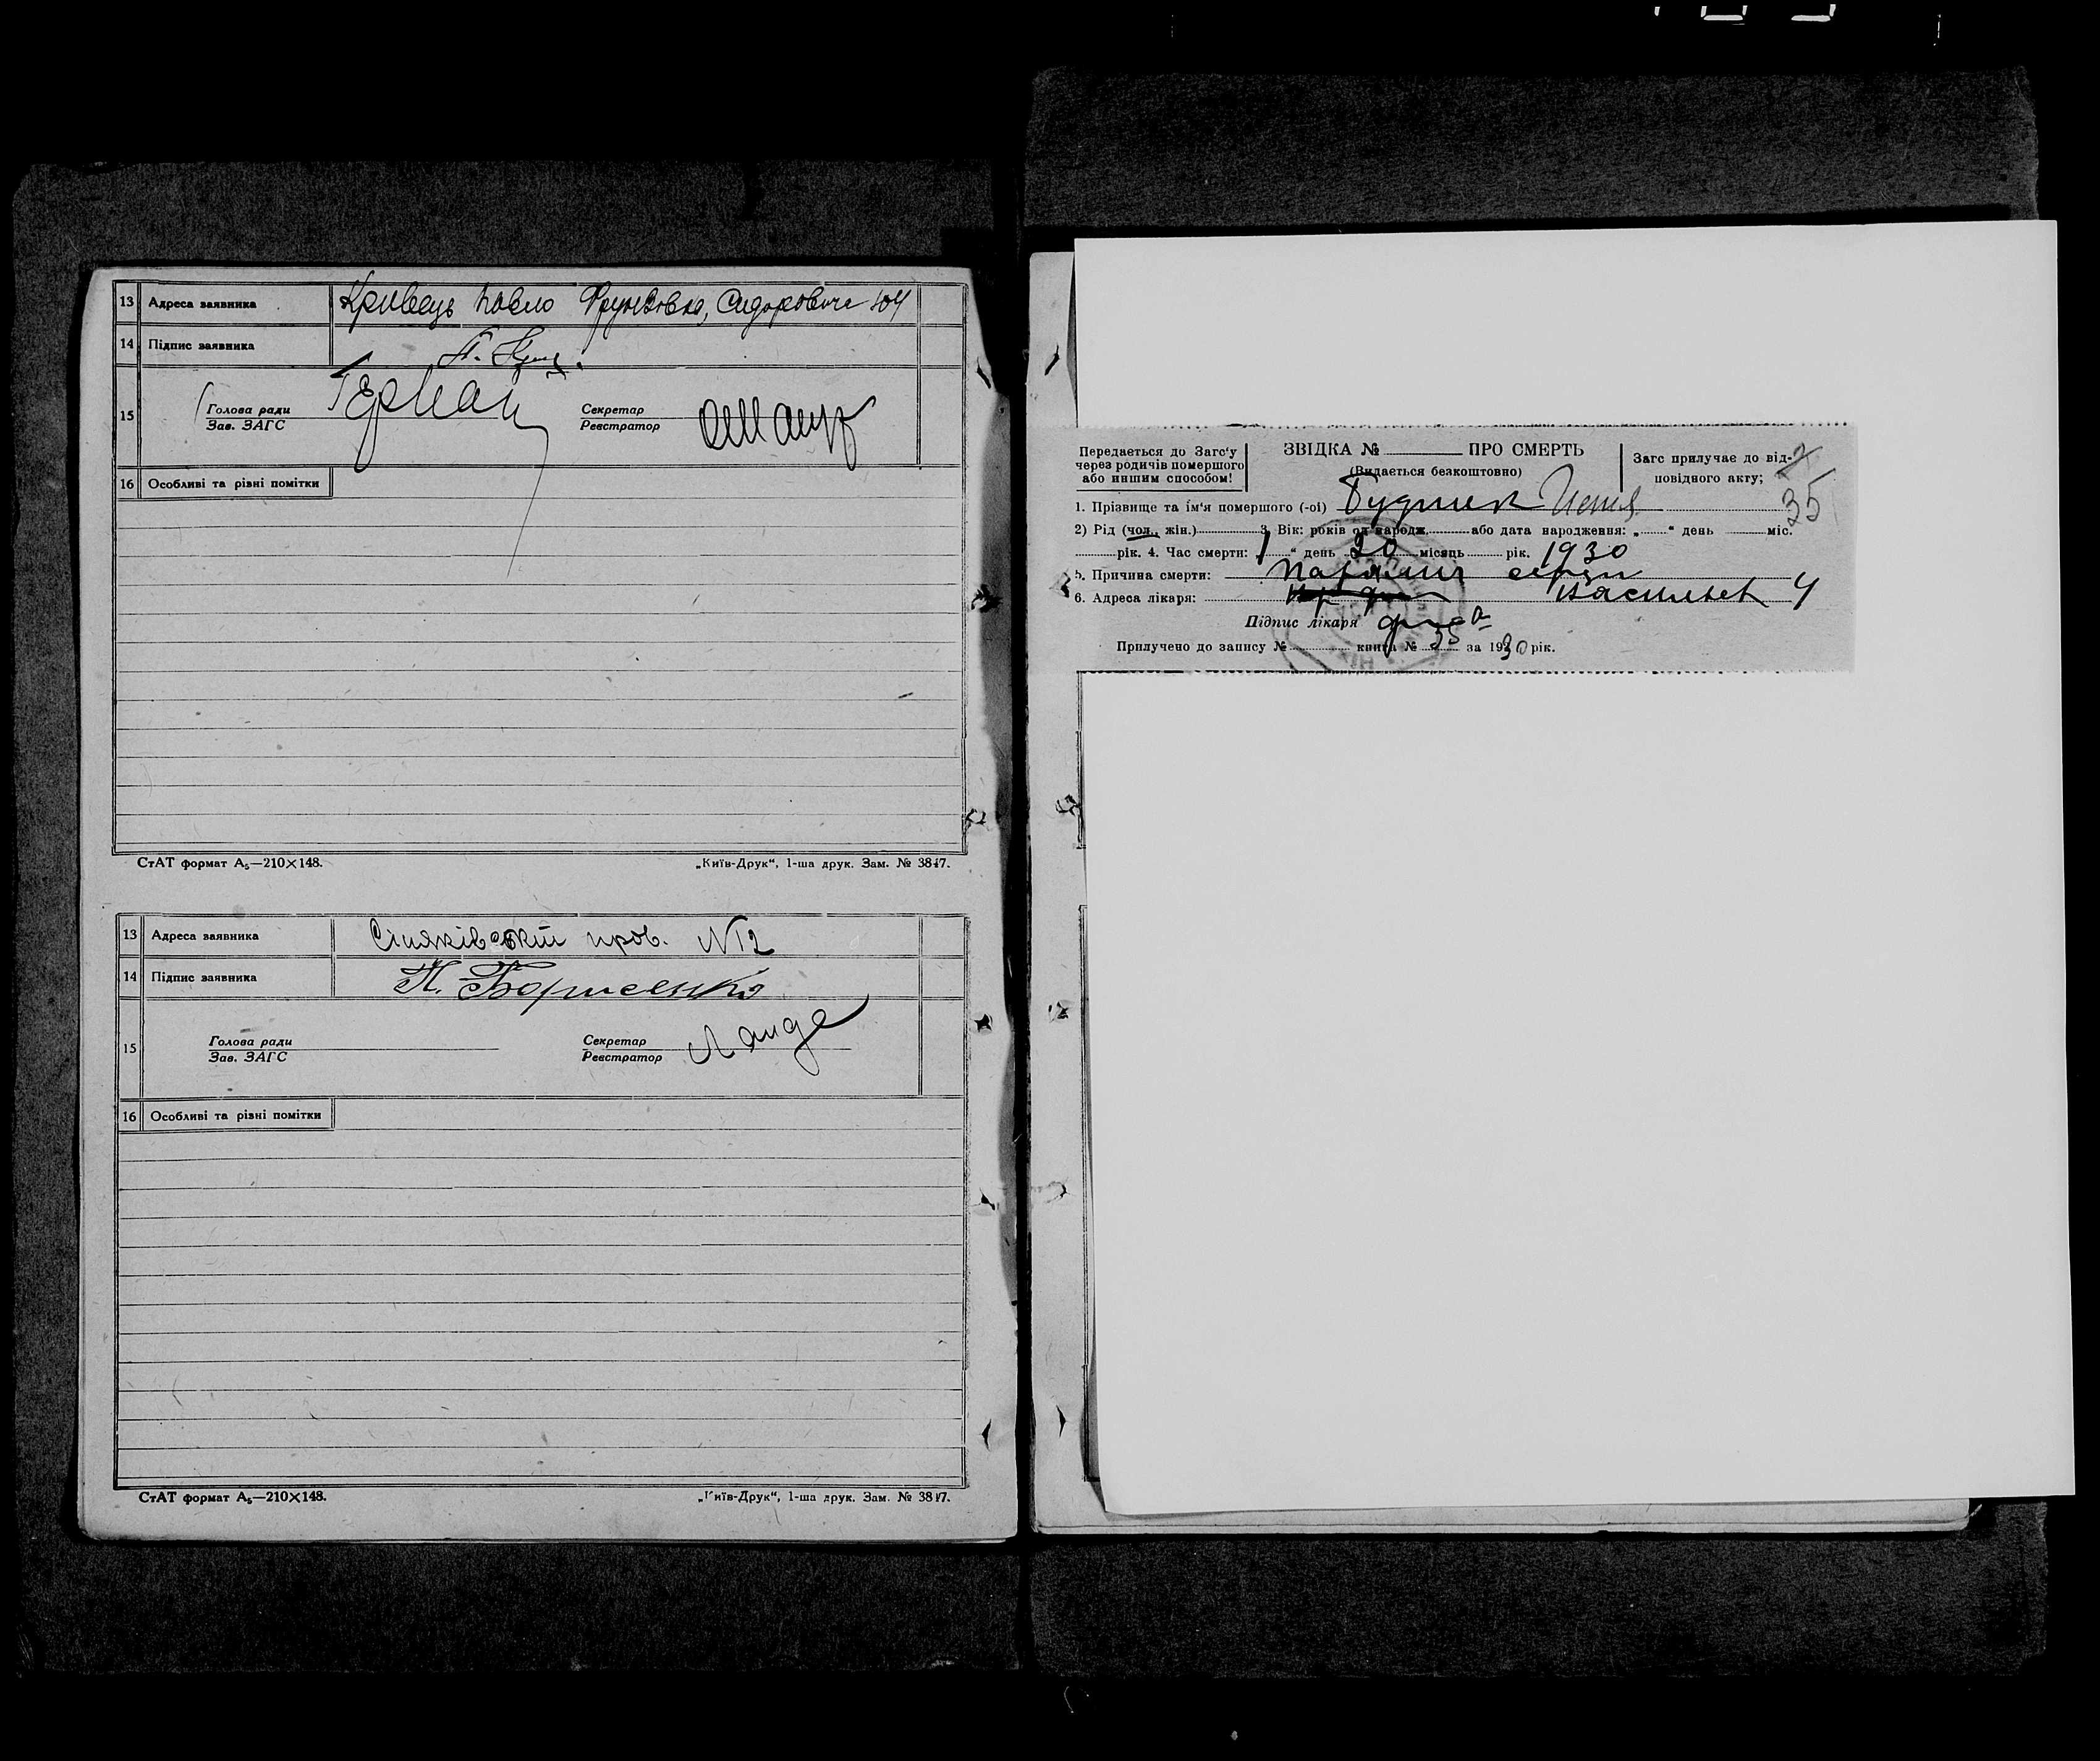 13 Адреса заявника Кривець Павло Фрунзівка, Сидоровича 104
14 Підпис заявника
15 Голова ради Секретар
Зав. ЗАГС Реєстратор
16 Особливі та різні помітки
СтАТ формат А₅—210×148. „Київ-Друк“, 1-ша друк. Зам. № 3847.
13 Адреса заявника пров. N 12
14 Підпис заявника П. Борисенко
15 Голова ради Секретар
Зав. ЗАГС Реєстратор Ланде
16 Особливі та різні помітки
СтАТ формат А₅—210×148. „Київ-Друк“, 1-ша друк. Зам. № 3847.
Передається до Загс'у
через родичів помершого
або иншим способом!
ЗВІДКА № ПРО СМЕРТЬ
(Видається безкоштовно)
Загс прилучає до від-
повідного акту;
35
1. Прізвище та ім'я помершого (-ої) Будник
2) Рід (чол., жін.) 3. Вік: років од народж. або дата народження: „ “ день міс.
рік. 4. Час смерти: 1 “ день 20 місяць рік. 1930
5. Причина смерти: Параліч серця
6. Адреса лікаря: 4
Підпис лікаря
Прилучено до запису № книга № 35 за 1930 рік.